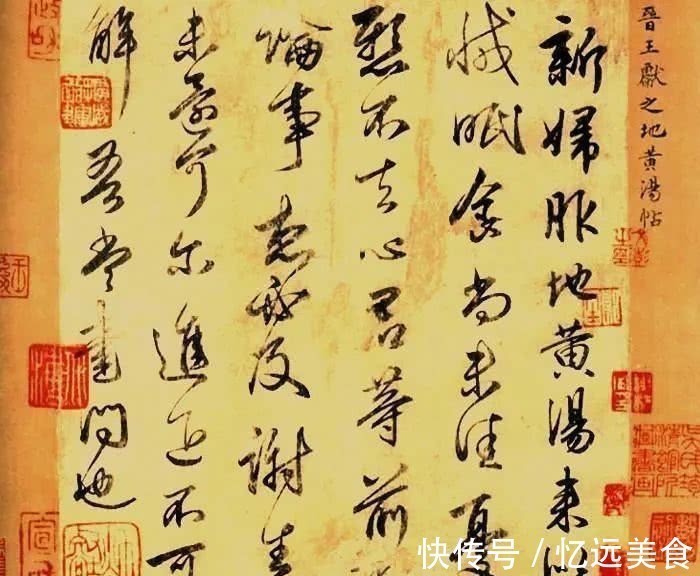 晉王獻之地黄湯帖
新婦服地黄湯来似
減眠食尚未佳憂
懸不去心君等前
論事想必及謝生
未還何尔進退不可
解吾當書問也
快传号 / 忆远美食